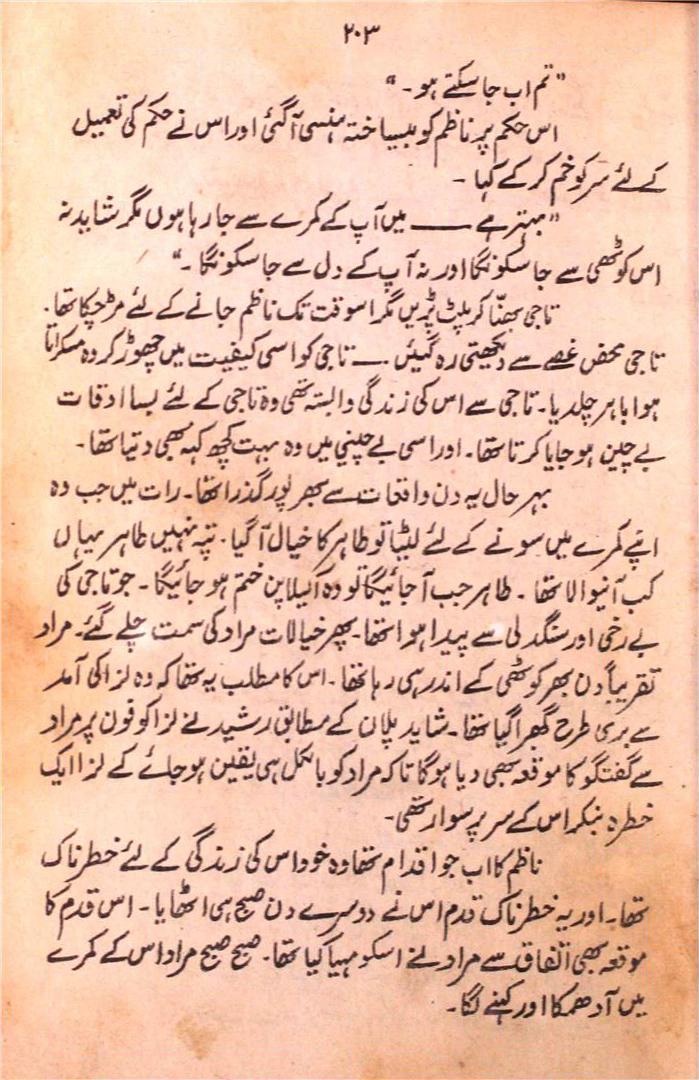 ۲۰۳
”تم اب جا سکتے ہو۔“
اس حکم پر ناظم کو بیساختہ ہنسی آ گئی اور اس نے حکم کی تعمیل
کے لئے سر کو خم کر کے کہا ۔
”بہتر ہے ——— میں آپ کے کمرے سے جا رہا ہوں مگر شاید نہ
اس کوٹھی سے جا سکونگا اور نہ آپ کے دل سے جا سکونگا ۔“
تاجی بھنّا کر پلٹ پڑیں مگر اسوقت تک ناظم جانے کے لئے مڑ چکا تھا۔
تاجی محض غصے سے دیکھتی رہ گئیں ۔— تاجی کو اسی کیفیت میں چھوڑ کر وہ مسکراتا
ہوا باہر چلدیا۔ تاجی سے اس کی زندگی وابستہ تھی وہ تاجی کے لئے بسا اوقات
بے چین ہو جایا کرتا تھا۔ اور اسی بے چینی میں وہ بہت کچھ کہہ بھی دیتا تھا۔
بہر حال یہ دن واقعات سے بھر پور گذرا تھا۔ رات میں جب وہ
اپنے کمرے میں سونے کے لئے لیٹا تو طاہر کا خیال آ گیا۔ پتہ نہیں طاہر یہاں
کب آنیوالا تھا ۔ طاہر جب آ جائیگا تو وہ اکیلا پن ختم ہو جائیگا ۔ جو تاجی کی
بے رخی اور سنگدلی سے پیدا ہوا تھا۔ پھر خیالات مراد کی سمت چلے گئے۔ مراد
تقریباً دن بھر کوٹھی کے اندر ہی رہا تھا ۔ اس کا مطلب یہ تھا کہ وہ لزا کی آمد
سے بری طرح گھبرا گیا تھا۔ شاید پلان کے مطابق رشید نے لزا کو فون پر مراد
سے گفتگو کا موقعہ بھی دیا ہوگا تاکہ مراد کو بالکل ہی یقین ہو جائے کے لزا ایک
خطرہ بنکر اس کے سر پر سوار تھی۔
ناظم کا اب جو اقدام تھا وہ خود اس کی زندگی کے لئے خطرناک
تھا۔ اور یہ خطرناک قدم اس نے دوسرے دن صبح ہی اٹھایا ۔ اس قدم کا
موقعہ بھی اتفاق سے مراد نے اسکو مہیا کیا تھا۔ صبح صبح مراد اس کے کمرے
میں آ دھمکا اور کہنے لگا۔